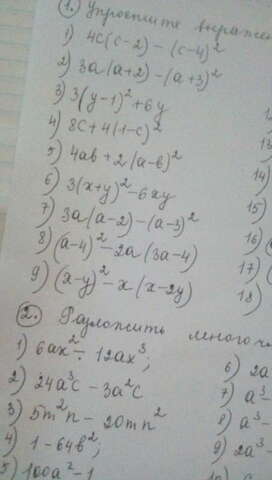 1. Упростите выражен
1) 4c(c-2) - (c-4)²
2) 3a(a+2) - (a+3)²
3) 3(y-1)² + 6y
4) 8c + 4(1-c)²
5) 4ab + 2(a-b)²
6) 3(x+y)² - 6xy
7) 3a(a-2) - (a-3)²
8) (a-4)² - 2a(3a-4)
9) (x-y)² - x(x-2y)
13
14)
15)
16)
17)
18)
2. Разложить многоч
1) 6ax² - 12ax³;
2) 24a³c - 3a²c
3) 5m²n - 20mn²
4) 1 - 64b²;
5) 100a² - 1
6) 2a
7) a³-
8) a³-
9) 2a³-